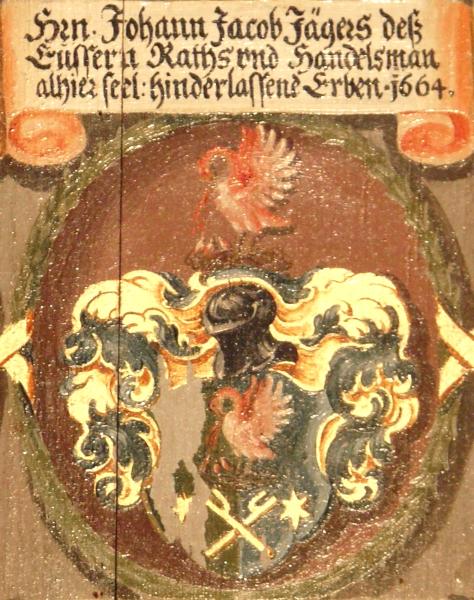 Hrn. Johann Jacob Jägers deß
Eussern Raths vnd Handelsman
alhier seel: hinderlassene Erben. 1664.